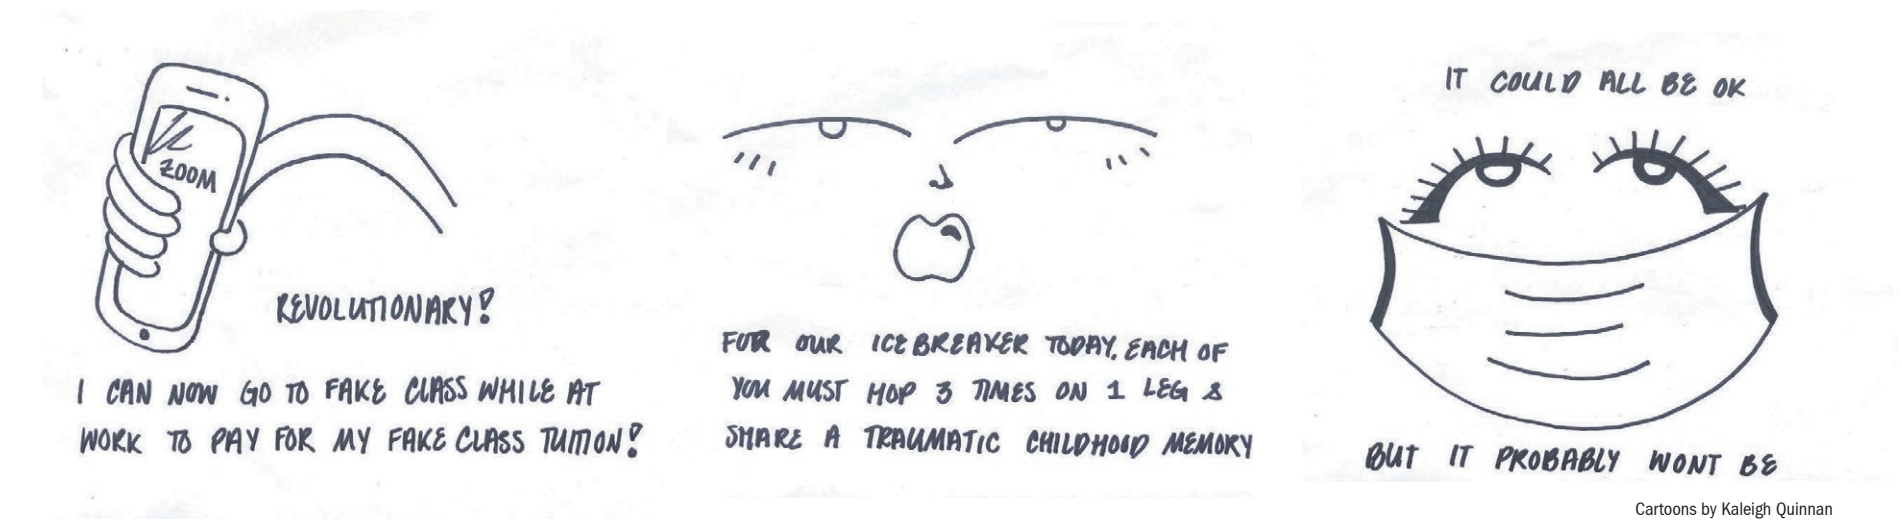 ZOOM
REVOLUTIONARY!
I CAN NOW GO TO FAKE CLASS WHILE AT
WORK TO PAY FOR MY FAKE CLASS TUITION!
FOR OUR ICE BREAKER TODAY, EACH OF
YOU MUST HOP 3 TIMES ON 1 LEG &
SHARE A TRAUMATIC CHILDHOOD MEMORY
IT COULD ALL BE OK
BUT IT PROBABLY WONT BE
Cartoons by Kaleigh Quinnan